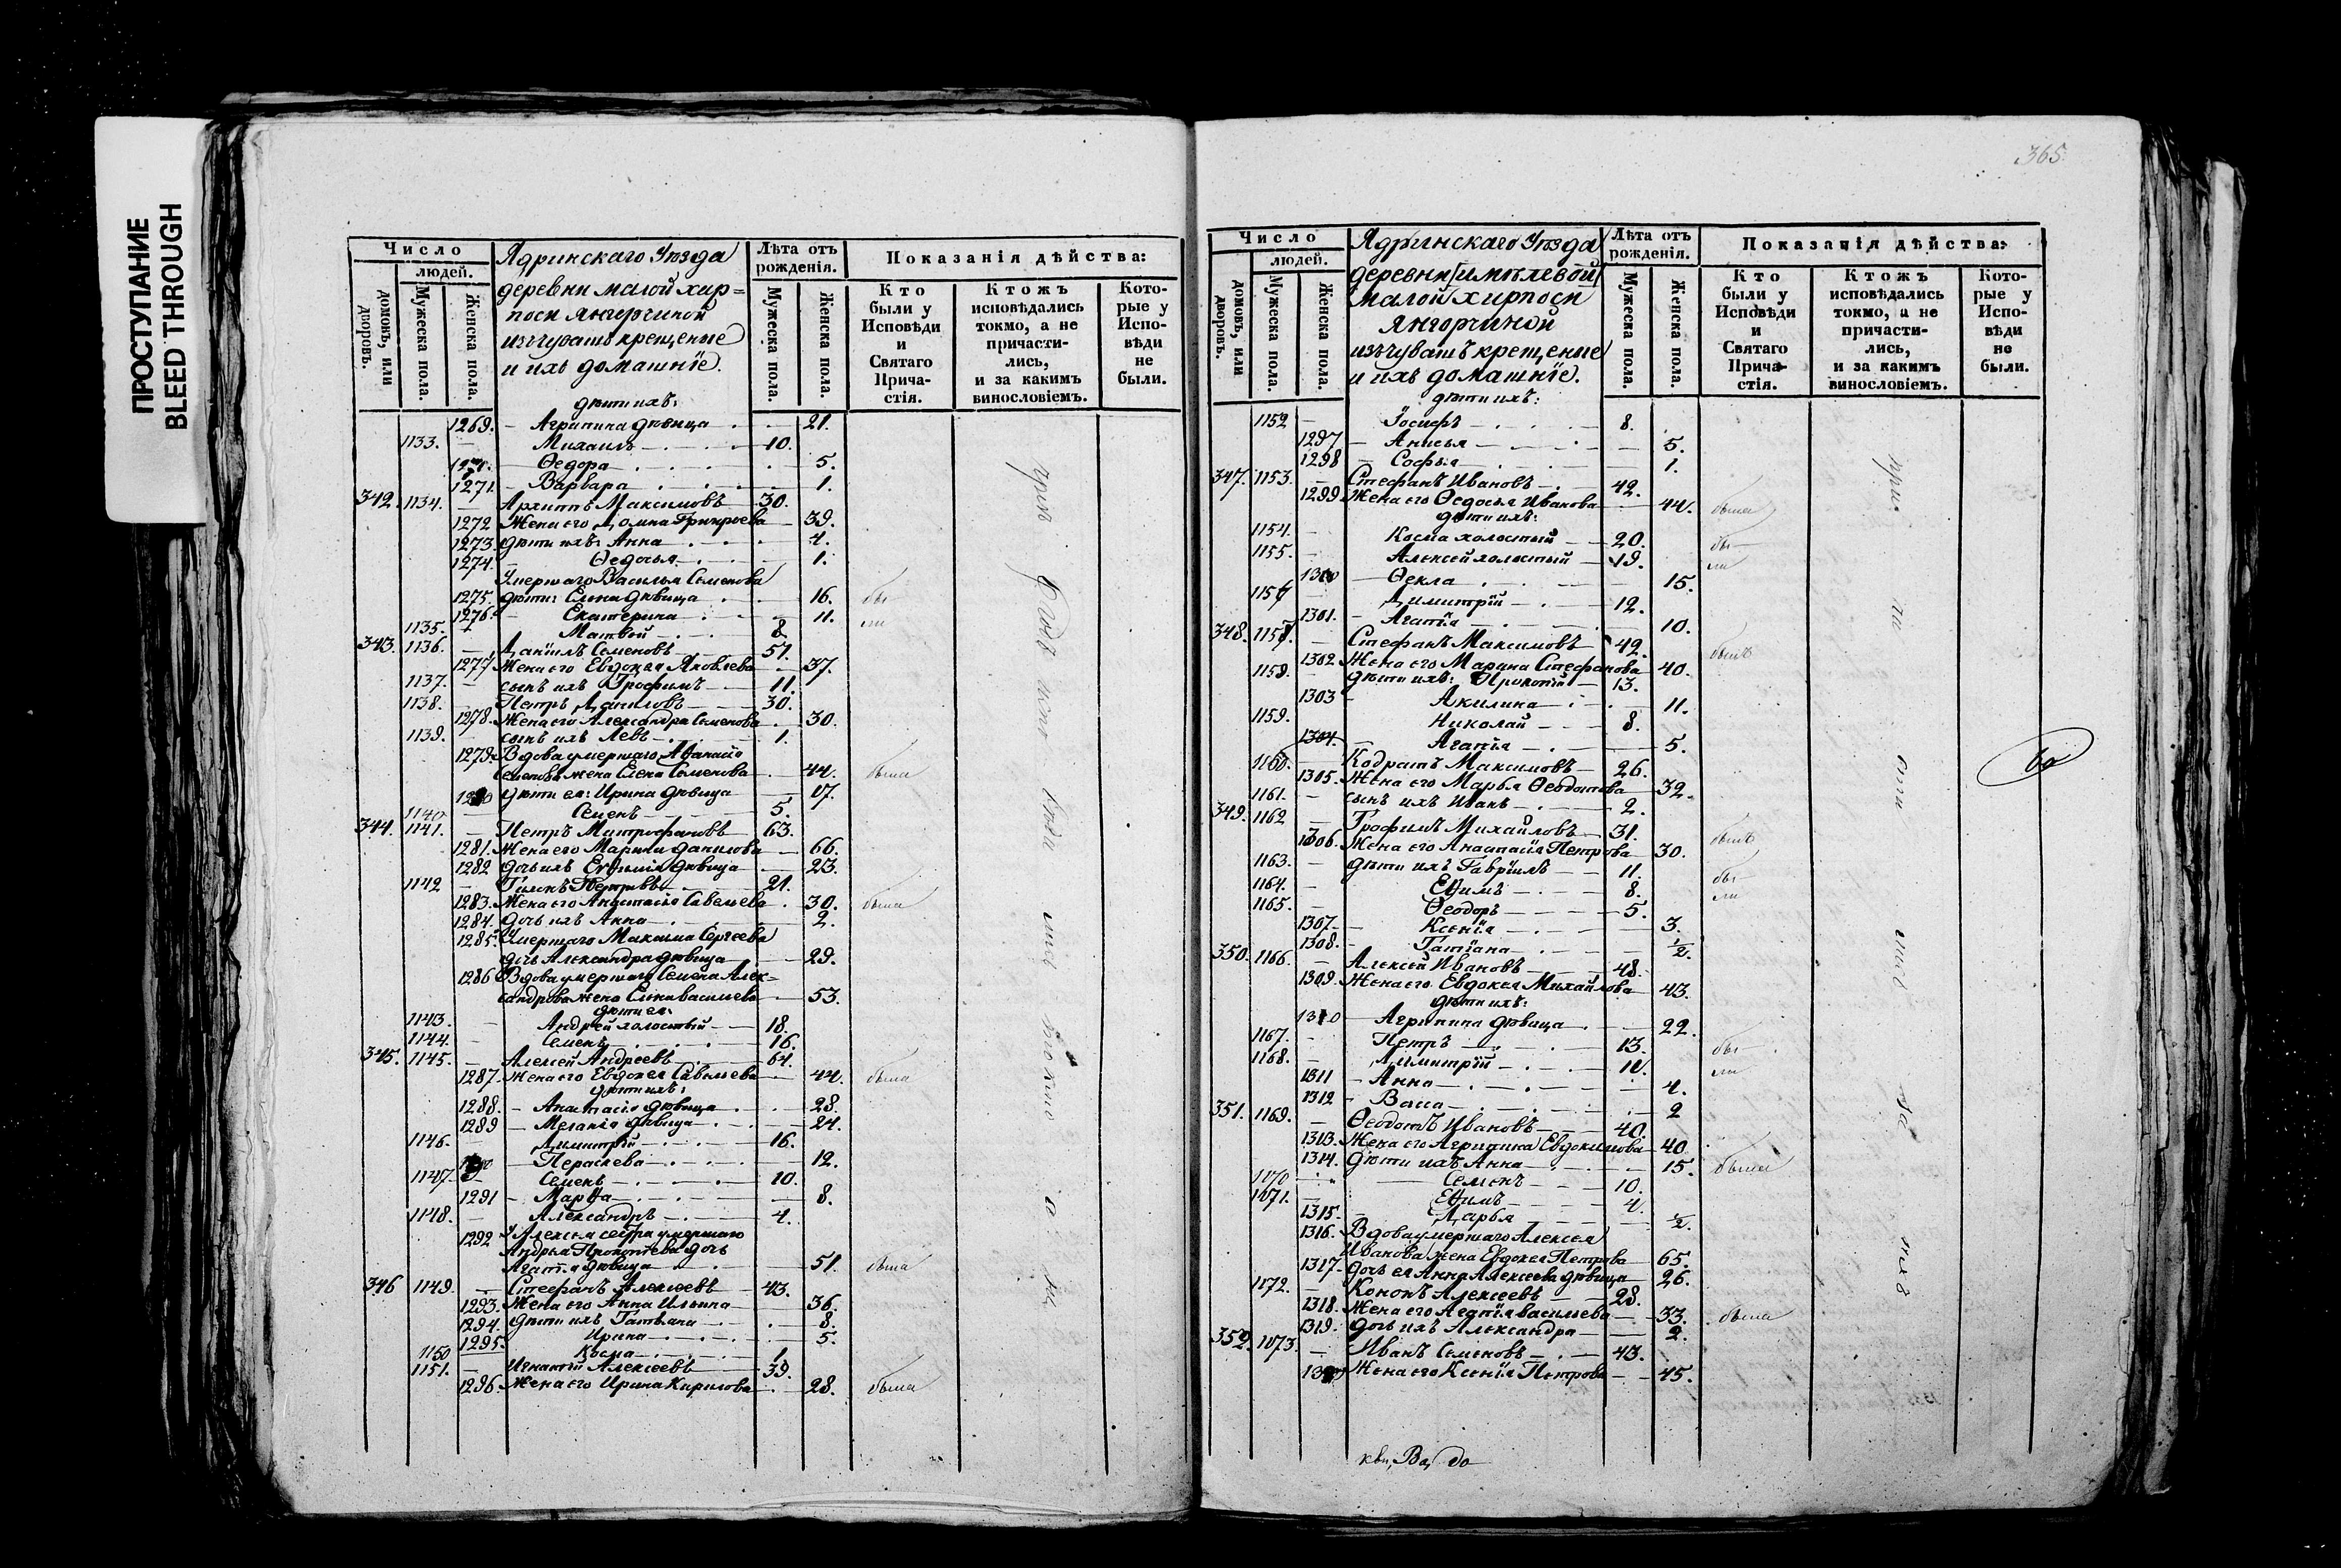 ПРОСТУПАНИЕ
BLEED THROUGH
Число
людей.
домовъ, или дворовъ.
Мужеска пола.
Женска пола.
Ядринскаго Уѣзда
деревни малой хир=
поси Янгорчиной
изъчувашъ крещеные
и ихъ домашніе.
Лѣта отъ рожденія.
Мужеска пола.
Женска пола.
Показанія дѣйства:
Кто были у Исповѣди и Святаго Прича-стія.
Ктожъ исповѣдались токмо, а не причасти-лись, и за какимъ винословіемъ.
Кото-рые у Испо-вѣди не были.
дѣти ихъ:
1269. – Агрипина дѣвица 21.
1133. – Михаилъ 10.
Ѳедора 5.
1271. – Варвара 1.
342. 1134. – Архипъ Максимовъ 30.
1272 Жена его Домна Григорьева 39.
1273. дѣти ихъ: Анна 4.
1274. – Ѳедосья 1.
Умершаго Василья Семенова
1275. дѣти: Елена дѣвица 16. бы
1276. – Екатерина 11.
1135. Матвей 8 ли
343. 1136. – Даніилъ Семеновъ 51.
1277 Жена его Евдокея Яковлева 37.
1137. – сынъ ихъ Трофимъ 11.
1138. – Петръ Даниловъ 30.
1278. Жена его Александра Семенова 30.
1139. – сынъ ихъ Левъ 1.
1279. Вдова умершаго Аѳанасія
Семенова жена Елена Семенова 44. были
1280 дѣти ея: Ирина дѣвица 17.
1140 – Семенъ 5.
344. 1141. – Петръ Митрофановъ 63.
1281. Жена его Марина данилова 66.
1282 дочь ихъ Евѳимія дѣвица 23.
1142 – Петровъ 21.
1283. Жена его Анастасія Савельева 30. были
1284. дочь ихъ Анна 2.
1285. Умершаго Максима Сергеева
дочь Александра дѣвица 29.
1286 Вдова умершаго Семена Алек-
сандрова жена Елена васильева 53.
дѣти ея:
1143. – Андрей холостый 18.
1144. – Семенъ 16.
345. 1145. – Алексей Андреевъ 64.
1287. Жена его Евдокея Савельева 44. были
дѣти ихъ:
1288. – Анастасія дѣвица 28.
1289 – Меланія дѣвица 24.
1146. – Димитрій 16.
1290 – Параскева 12.
1147. – Семенъ 10.
1291 – Марѳа 8.
1148. – Александръ 4.
1292 У Алексея сестра умершаго
Андрея Прокопьева дочь
Агапія дѣвица 51. были
346 1149. – Стефанъ Алексеевъ 43.
1293. Жена его Анна Ильина 36.
1294. дѣти ихъ Татьяна 8.
1295. Ирина 5.
1150 Косма 1.
1151. – Игнатій Алексеевъ 39.
1296. Жена его Ирина Кирилова 28. были
365.
Число
людей.
домовъ, или дворовъ.
Мужеска пола.
Женска пола.
Ядринскаго Уѣзда
деревни
малой хирпоси
Янгорчиной
изъчувашъ крещеные
и ихъ домашніе.
Лѣта отъ рожденія.
Мужеска пола.
Женска пола.
Показанія дѣйства:
Кто были у Исповѣди и Святаго Прича-стія.
Ктожъ исповѣдались токмо, а не причасти-лись, и за какимъ винословіемъ.
Кото-рые у Испо-вѣди не были.
дѣти ихъ:
1152 – Іосифъ 8.
1297 – Анисья 5.
1298 – Софья 1.
347. 1153. – Стефанъ Ивановъ 42.
1299 Жена его Ѳедосья Иванова 44. были
дѣти ихъ:
1154. – Косма холостый 20. бы
1155. – Алексей холостый 19. ли
1300 – Ѳекла 15.
1156 Димитрій 12.
1301. – Агапія 10.
348. 1157. – Стефанъ Максимовъ 42. былъ
1302 Жена его Марина Стефанова 40.
1158. – дѣти ихъ: Прокопій 13.
1303 – Акилина 11.
1159. Николай 8.
1304. – Агапія 5.
1160. – Кодратъ Максимовъ 26.
1305. Жена его Марья Ѳеодотова 32.
1161. – сынъ ихъ Иванъ 2.
349. 1162 – Трофимъ Михайловъ 31. былъ
1306. Жена его Анастасія Петрова 30.
1163. – дѣти ихъ Гавріилъ 11. бы
1164. – Еѳимъ 8. ли
1165. – Ѳеодоръ 5.
1307. – Ксенія 3.
1308. – Татіана ½.
350. 1166. – Алексей Ивановъ 48.
1309. Жена его Евдокея Михайлова 43.
дѣти ихъ:
1310 – Агрипина дѣвица 22.
1167. – Петръ 13. бы
1168. – Димитрій 11. ли
1311 – Анна 4.
1312 – Васса 2
351. 1169. – Ѳеодотъ Ивановъ 40.
1313. Жена его Агрипина Евдокимова 40
1314. дѣти ихъ Анна 15. были
1070 Семенъ 10.
1071. – Еѳимъ 4.
1315. – Дарья ½.
1316. Вдова умершаго Алексея
Иванова жена Евдокея Петрова 65.
1317. дочь ея Анна Алексеева дѣвица 26.
1172. – Кононъ Алексеевъ 28.
1318. Жена его Агапія васильева 33. были
1319. дочь ихъ Александра 2.
352. 1073. – Иванъ Семеновъ 43.
1320 Жена его Ксенія Петрова 45.